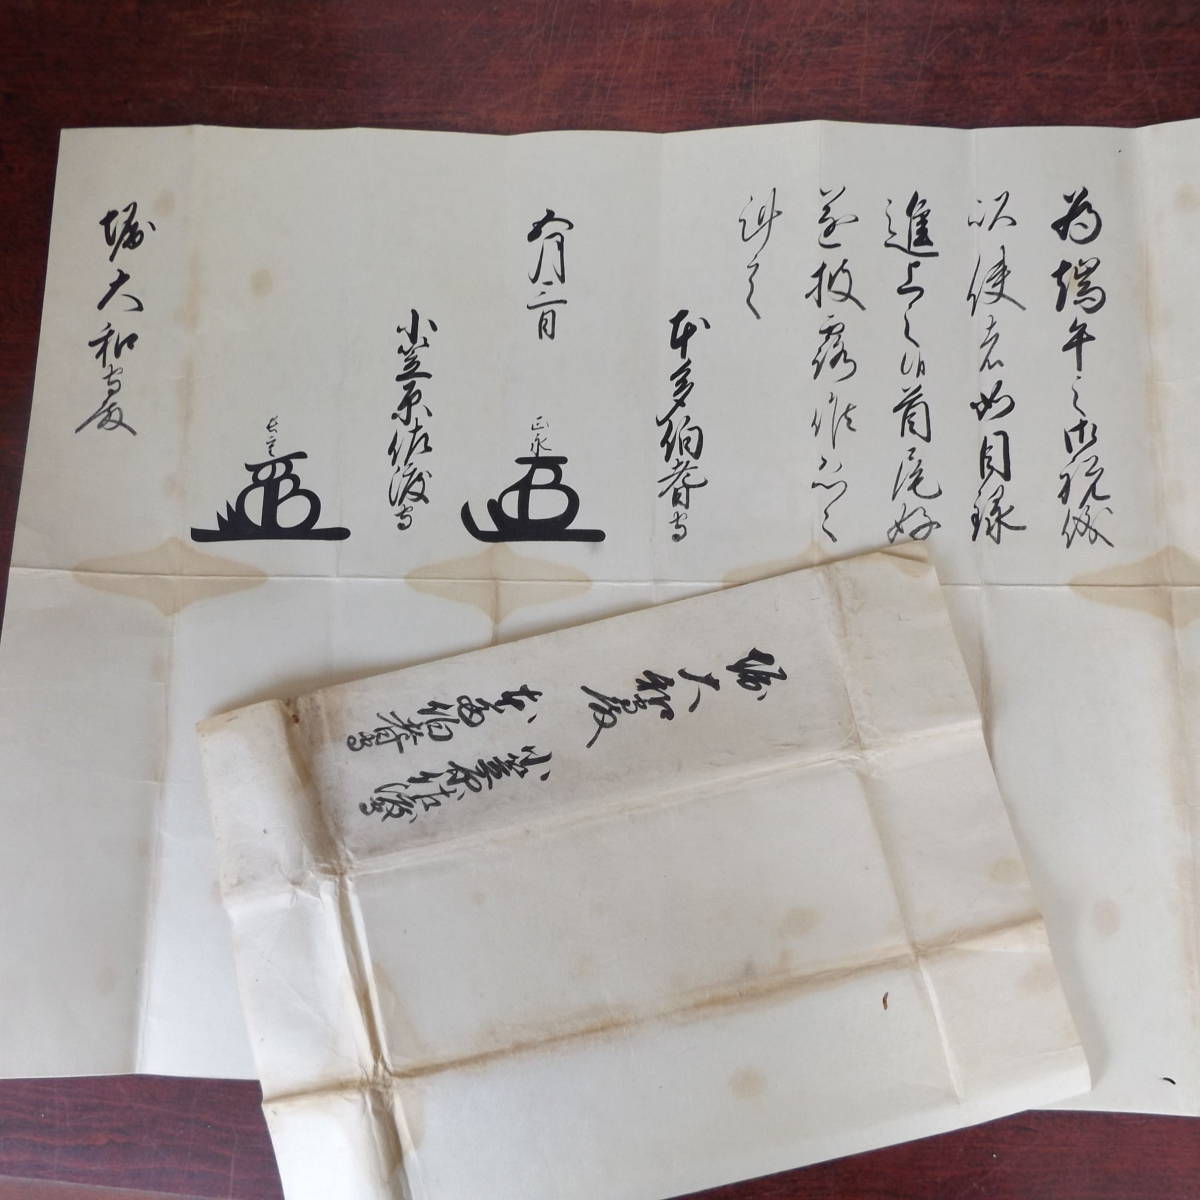 為端午之御祝儀
以使者如目録
進上之候首尾好
遂披露候恐々
謹言
本多伯耆守
五月三日
正永
小笠原佐渡守
長重
堀大和守殿
堀大和守殿
本多伯耆守
小笠原佐渡守